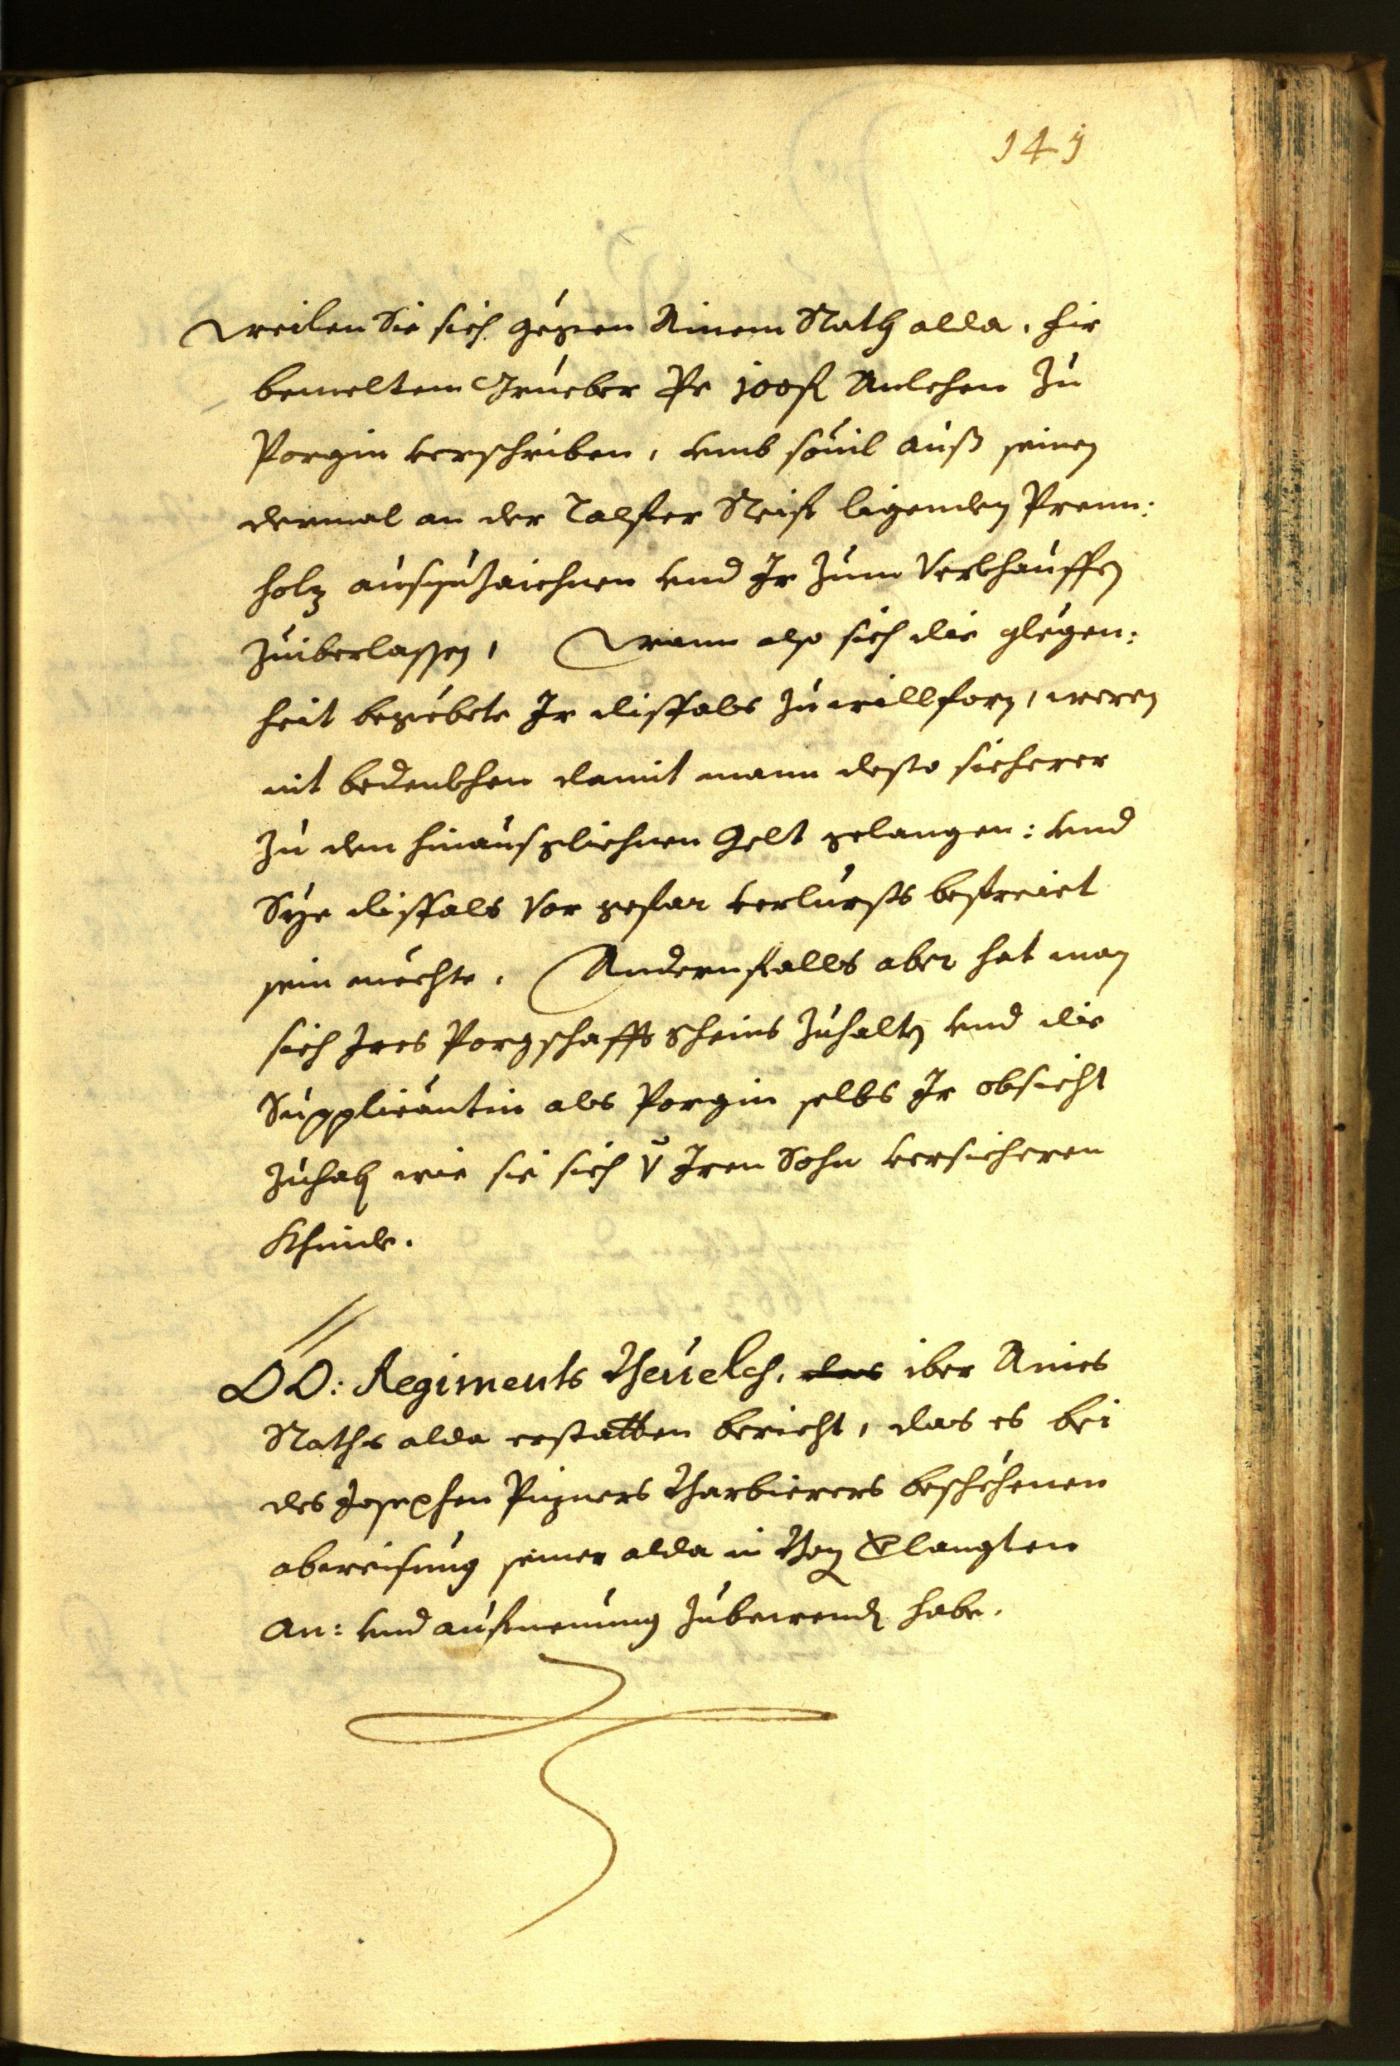 141
weilen Sie sich gegen Ainem Rath alda, fir
bemeltem Grueber Pr 100 fl Anlehen zu
Porgin verschriben, umb souil auß seinen
dermal an der Talfer Reist ligenden Prenn:
holz auszuzaichnen und Jr zum Verkhauffen
zuiberlassen, Wann also sich die glegen:
heit begebete Jr dissfals zuwillforn, weren
nit bedenkhen damit mann desto sicherer
zu dem hinausglichnen Gelt gelangen: und
Sye dissfals vor gefar verlursts befreiet
sein mechte. Andernfalls aber hat man
sich Jres Porgschafft scheins zuhalten und die
Supplicantin als Porgin selbs Jr obsicht
zuhaben wie sie sich v Jren Sohn versicheren
Khinde.
OÖ: Regiments Beuelch, das iber Aines
Raths alda erstatten bericht, das es bei
des Josephen Barbierers beschehenen
abweisung seiner alda in Bozen erlangten
An: und aufnemung zubewenden habe.